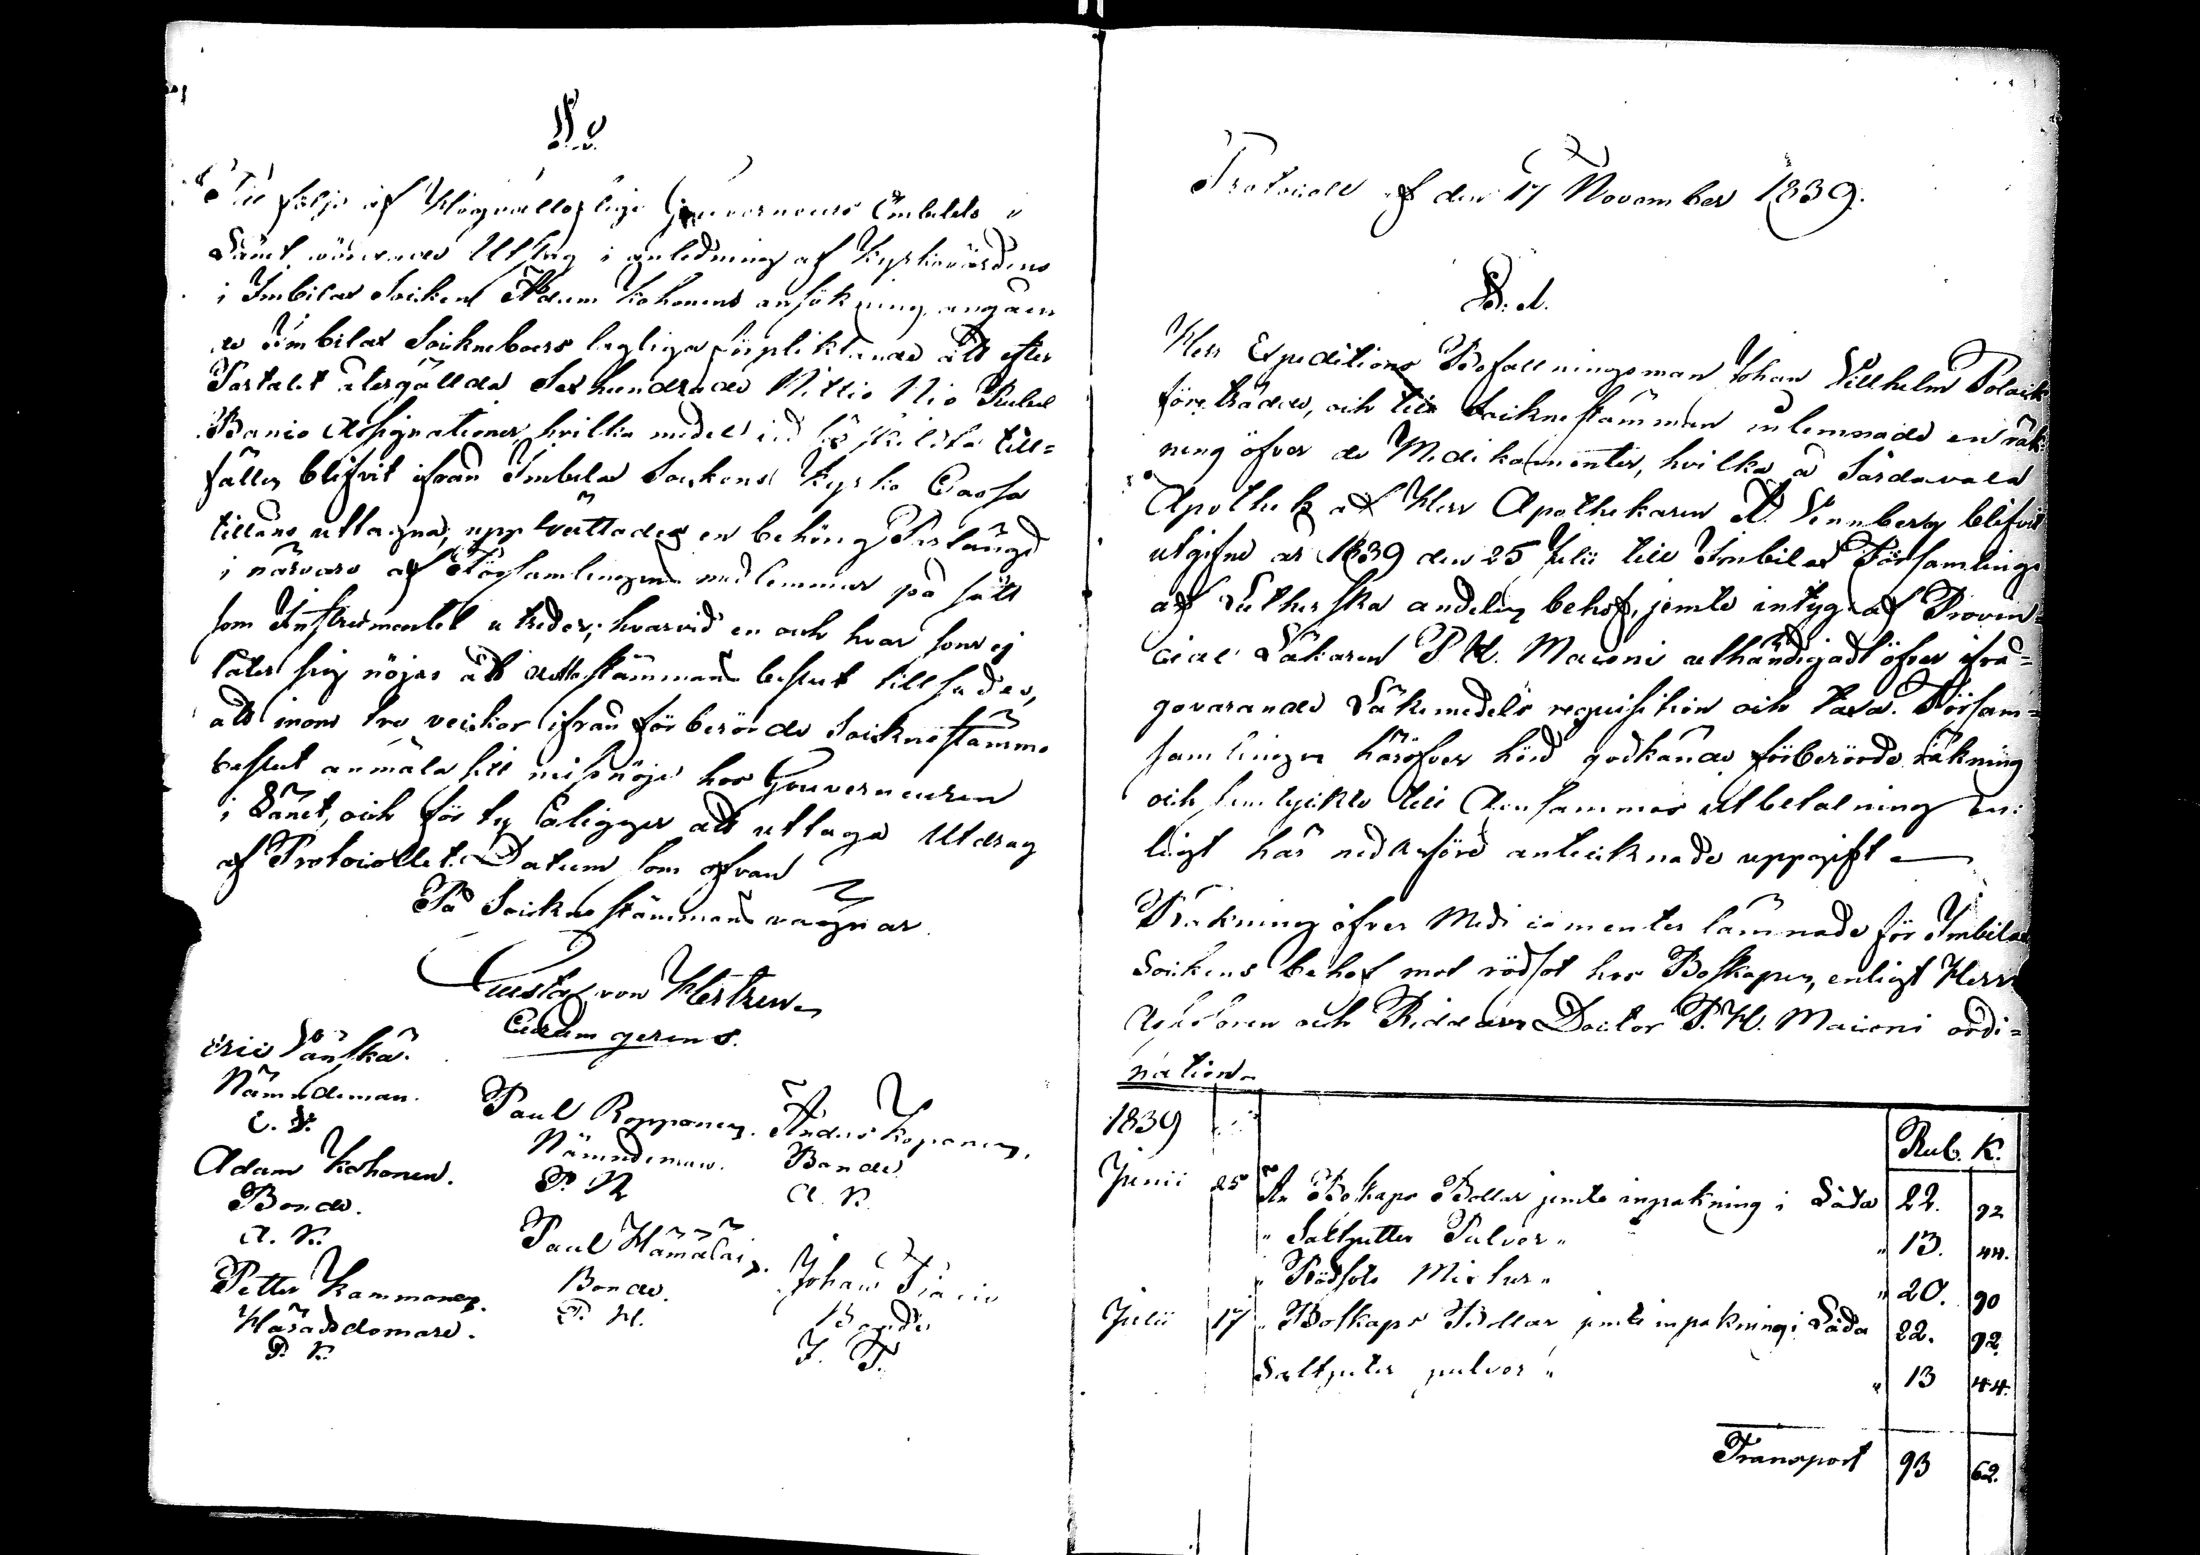 § 2.
Till följe af Högvälloflige Gouverneurs Embetets i
Länet wördnade Utslag i anledning af Kyrkovärdens
i Imbilax Socken Adam Kohonens ansökning angåen
de Imbilax Sockneboers lagliga förpliktande att efter
Partalet återgällda Sexhundrade Nittio Nio Rubel
Banco Assignationer, hvilka medel vid särskilta till=
fällen blifvit ifrån Imbilax Sockens Kyrko Cassa
tilläns uttagna, upprättades en behörig Partängd
i närvaro af Församlingens medlemmar på sätt
som Instrumentet utreder; hvarvid en och hvar som ej
låter sig nöjas åt stämmans beslut tillsades,
att inom tre veckor ifrån förberörde Socknestämmo
beslut anmäla sitt missnöje hos Gouverneuren
i Länet, och för ty åligger att uttaga Utdrag
af Protocollet. Datum som ofvan
På Sockne stämmans vägnar.
Gustaf von Hertzen
Curam gerens.
Eric Länskä.
Nämndeman.
Paul Ropponen. Anders Koponen.
Nämndeman. Bonde
P. R A. K.
Adam Kohonen.
Bonde.
A. K.
Paul Hämäläin.
Bonde.
P. H.
Johan Tiacio
Bonde
J. T.
Petter Kammonen.
Häradsdomare.
P. K.
Protocoll af den 17 November 1839.
§. 1.
Herr Expeditions Befallningsman Johan Vilhelm Polack
företrädde, och till Socknestämman inlemnade en räk
ning öfver de Medikamenter, hvilka å Sårdavala
Apothek af Herr Apothekaren A. Vennberg blifvit
utgifne år 1839 den 25 Julii till Imbilax Församlings
af Lutherska andelen behof, jemte intyg af Provin=
cial Läkaren P. H. Maconi uthändigadt öfver ifrå=
gavarande Läkemedels requisition och taxa. Försam=
samlingen häröfver hörd godkände förberörde räkning
och samtyckte till densammas utbetalning en:
ligt här nedanförd antecknade uppgift
Räkning öfver Medicamenter lämnade för Imbilax
Sockens behof mot rödsot hos Boskapen, enligt Herr
Assessoren och Riddaren Doctor P. H. Maconi ordi=
nation
1839 Rub. K.
Junii 25 Boskaps Bollar jemte inpakning i Låda 22. 92
" Saltpetter Pulver " " 13. 44.
" Rödsots Mixtur " " 20. 90
Julii 17 " Boskaps Bollar jemte inpakning i Låda 22. 92
Saltpeter pulver " " 13 44.
Transport 93 62.